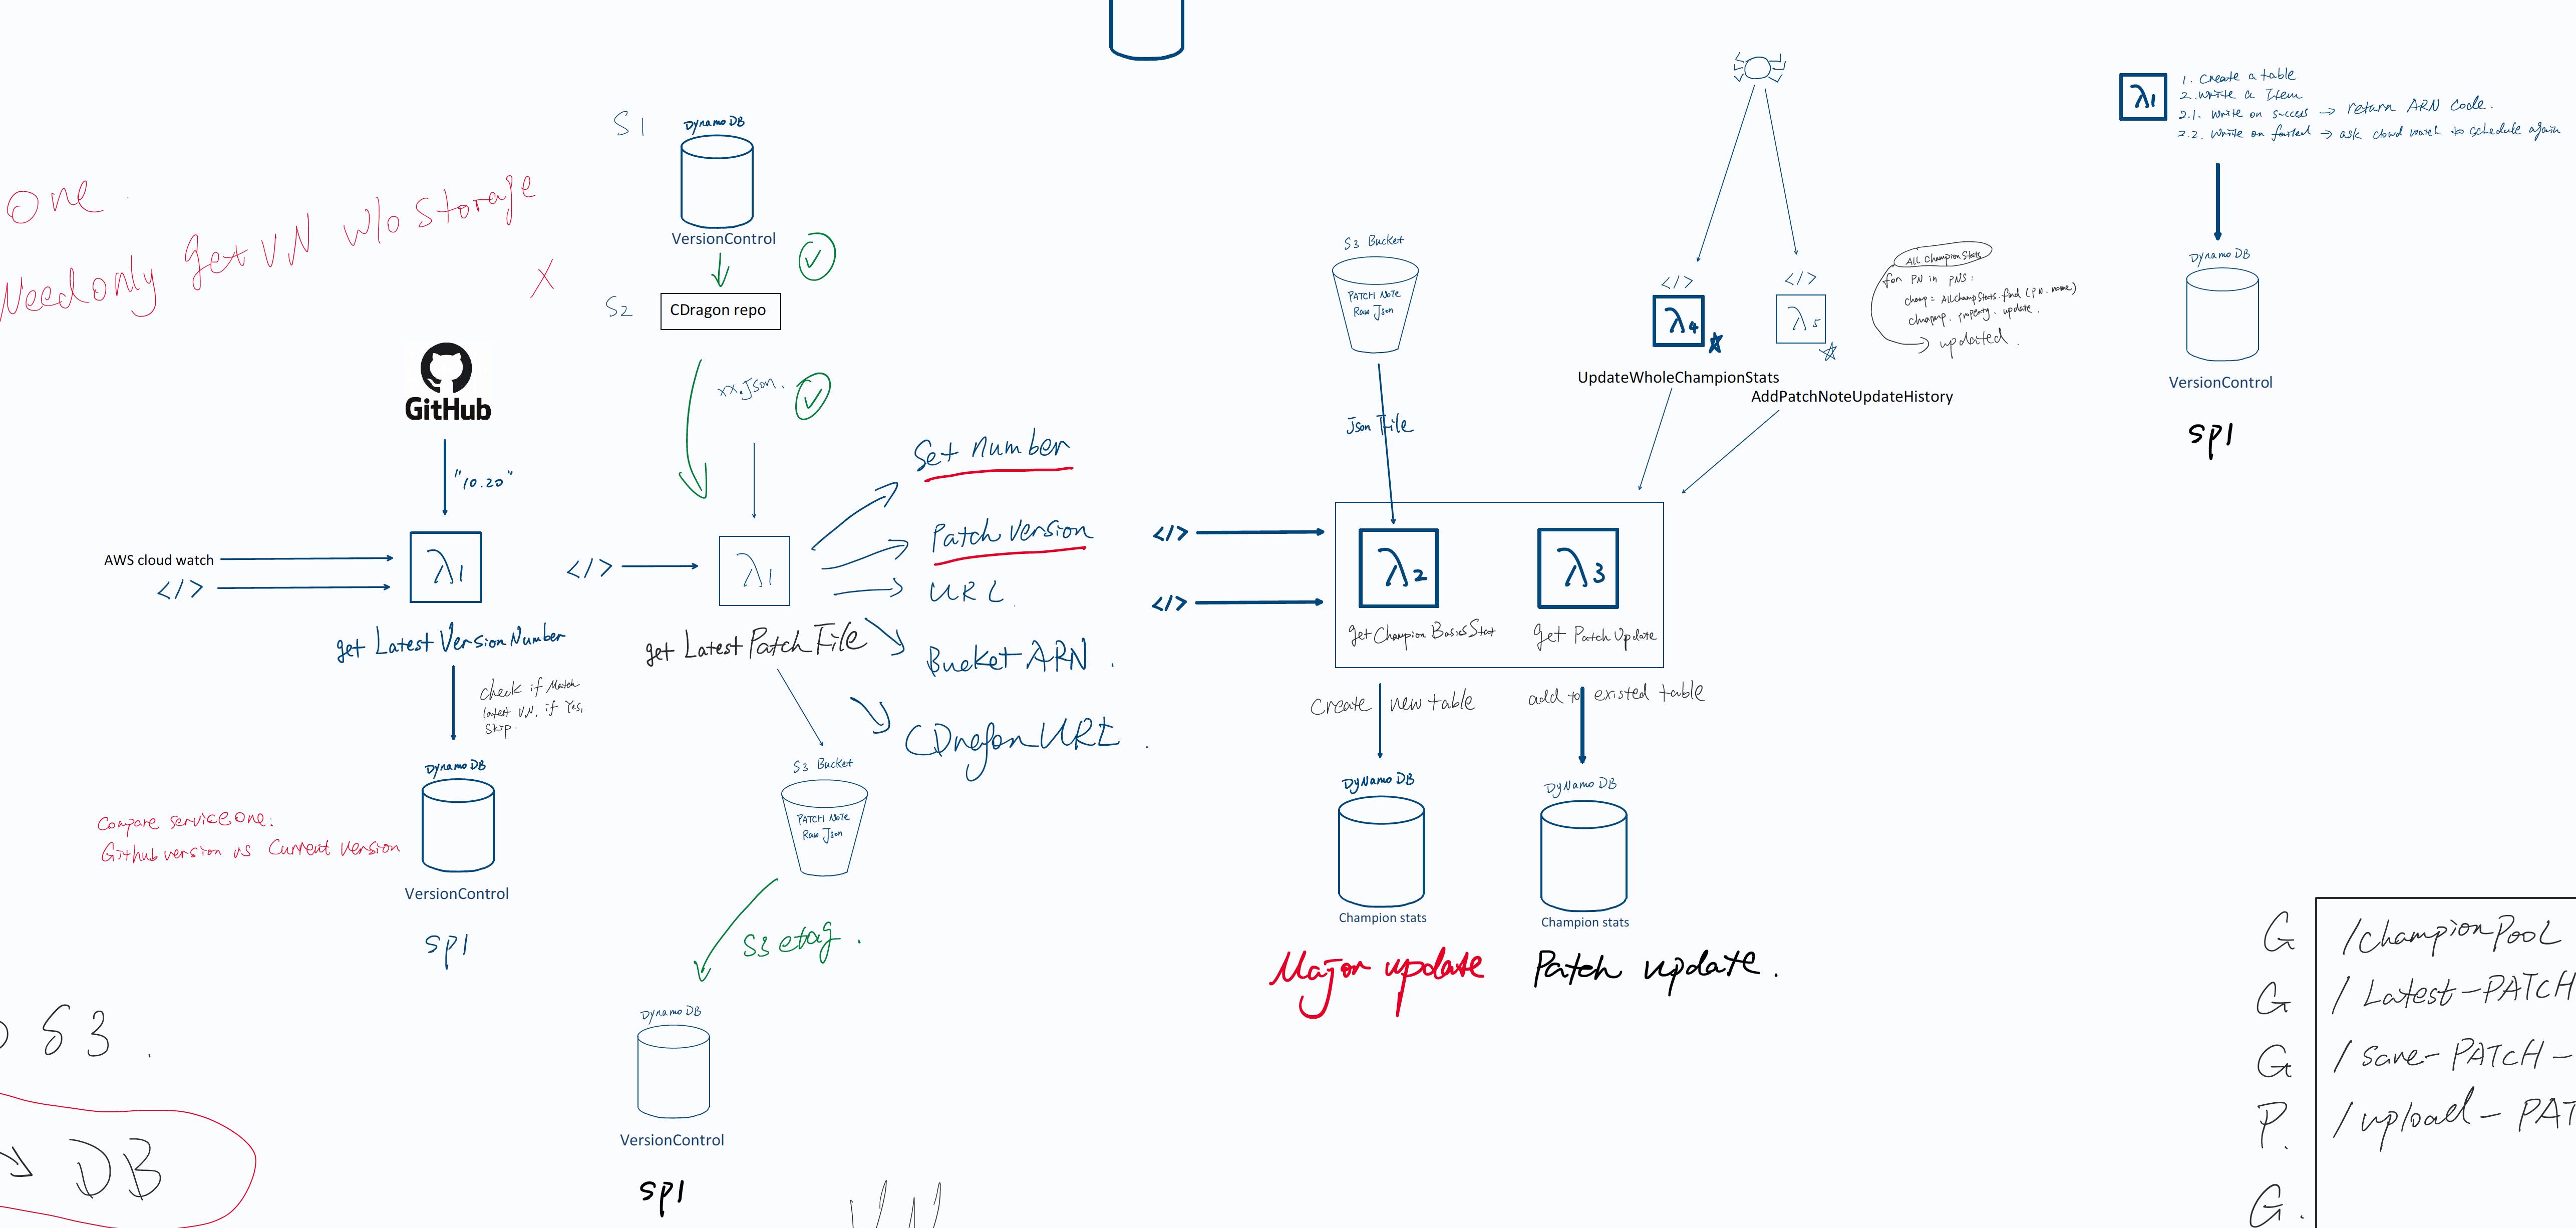 One.
Need only get VN w/o storage
X
GitHub
"10.20"
AWS cloud watch
</>
λ1
get Latest Version Number
check if Match
latest V.N, if Yes,
skip.
Dynamo DB
VersionControl
sp1
Compare service One:
Github version vs Current version
S3.
DB
S1
Dynamo DB
VersionControl
S2
CDragon repo
xx.Json.
</>
λ1
get Latest Patch File
Set number
Patch version
URL
Bucket ARN.
S3 Bucket
PATCH NOTE
Raw Json
S3 etag.
Dynamo DB
VersionControl
sp1
S3 Bucket
PATCH NOTE
Raw Json
Json File
</>
</>
λ2
get Champion Basics Stat
λ3
get Patch Update
Create new table
add to existed table
DyNamo DB
Champion stats
Major update
DyNamo DB
Champion stats
Patch update.
</>
λ4
UpdateWholeChampionStats
</>
λ5
AddPatchNoteUpdateHistory
ALL Champion Stats
for PN in PNS:
champ = AllChampStats.find (PN.name)
property. update.
updated.
λ1
1. Create a table
2. write a Item
2.1. write on success → return ARN code.
2.2. write on failed → ask cloud watch to schedule again
Dynamo DB
VersionControl
sp1
G /championPooL
G / Latest-PATCH
G / save-PATCH-
P. / upload-PAT
G.